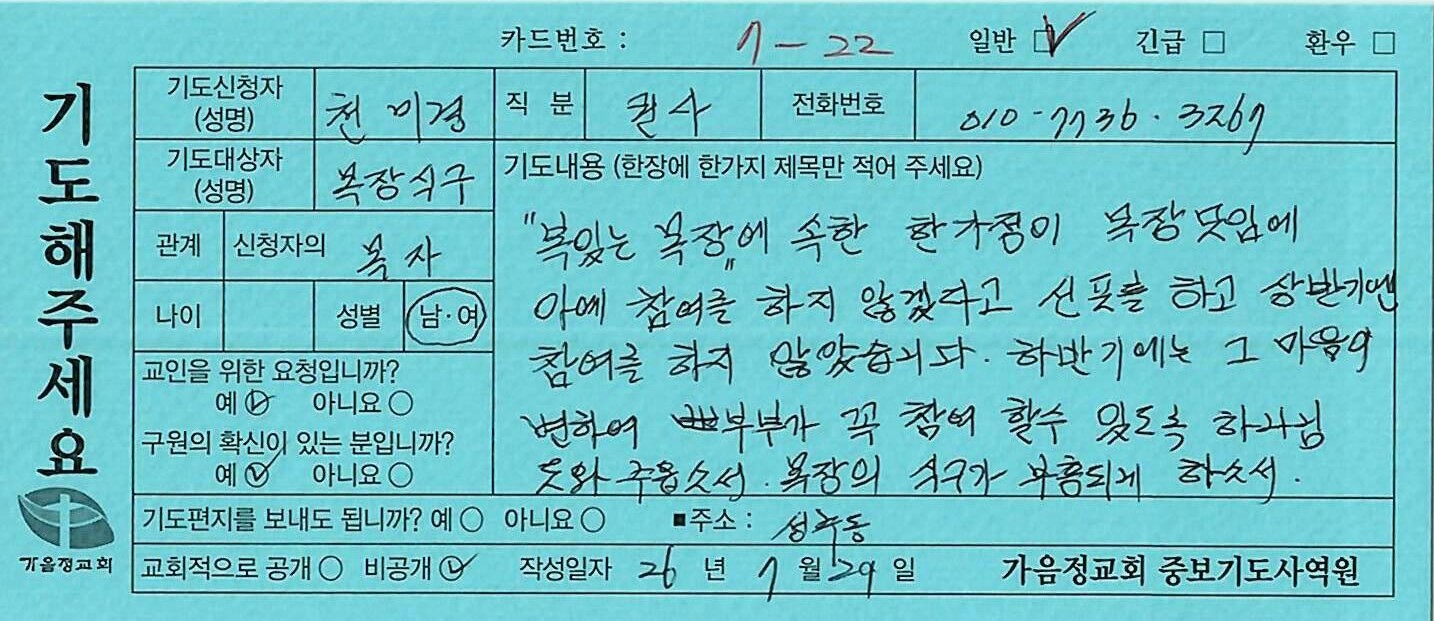 카드번호 : 7-22 일반 ☑ 긴급 □ 환우 □
기도해주세요
기도신청자 (성명) 천미경 직 분 권사 전화번호 010-7736-3267
기도대상자 (성명) 목장식구 기도내용 (한장에 한가지 제목만 적어 주세요)
관계 신청자의 목자
나이 성별 남·여
"복있는 목장"에 속한 한가정이 목장모임에
아예 참여를 하지 않겠다고 선포를 하고 상반기엔
참여를 하지 않았습니다. 하반기에는 그 마음이
변하여 부부가 꼭 참여 할수 있도록 하나님
도와 주옵소서. 목장의 식구가 부흥되게 하소서.
교인을 위한 요청입니까?
예 ☑ 아니요 ○
구원의 확신이 있는 분입니까?
예 ☑ 아니요 ○
기도편지를 보내도 됩니까? 예 ○ 아니요 ○ ■주소 : 성주동
교회적으로 공개 ○ 비공개 ☑ 작성일자 26 년 7 월 29 일 가음정교회 중보기도사역원
가음정교회